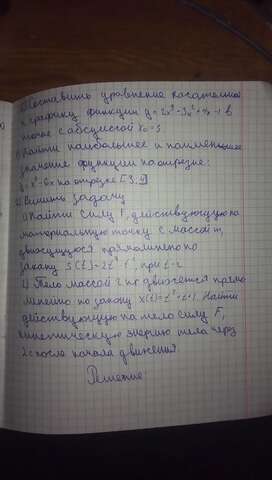 Составить уравнение касательной
к графику функции y=2x³-3x²+4x-1 в
точке с абсциссой x₀=
Найти наибольшее и наименьшее
значение функции на отрезке:
на отрезке
Решить задачу
1) Найти силу F, действующую на
материальную точку с массой m,
движущуюся прямолинейно по
закону S(t)=2t³-t², при t=2
2) Тело массой 2 кг движется прямо
линейно по закону x(t)=t²+t+1. Найти
действующую на тело силу F,
кинетическую энергию тела через
2с после начала движения.
Решение: